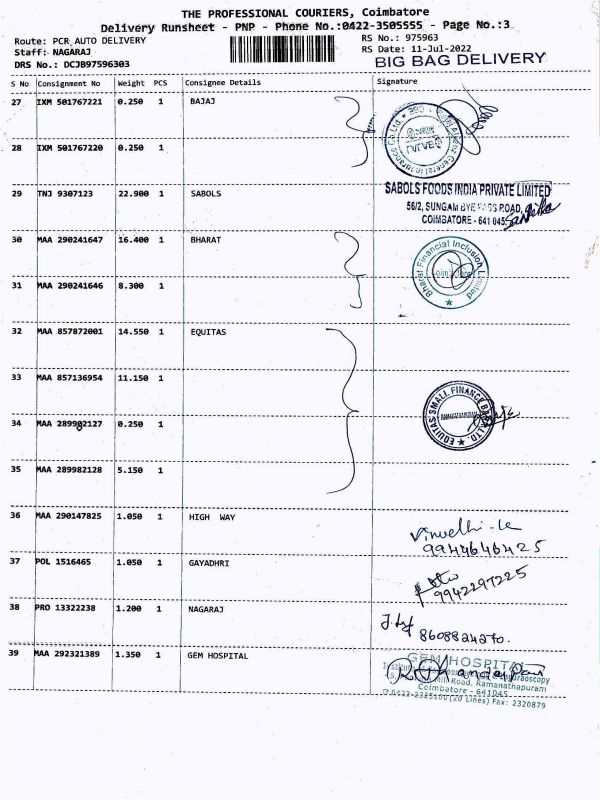 THE PROFESSIONAL COURIERS, Coimbatore
Delivery Runsheet - PNP - Phone No.:0422-3505555 - Page No.:3
Route: PCR AUTO DELIVERY RS No.: 975963
Staff: NAGARAJ RS Date: 11-Jul-2022
DRS No.: DCJB97596303 BIG BAG DELIVERY
S No Consignment No Weight PCS Consignee Details Signature
27 IXM 501767221 0.250 1 BAJAJ
28 IXM 501767220 0.250 1
29 TNJ 9307123 22.900 1 SABOLS
SABOLS FOODS INDIA PRIVATE LIMITED
56/2, SUNGAM BYE PASS ROAD,
COIMBATORE - 641 045
30 MAA 290241647 16.400 1 BHARAT
Bharat Financial Inclusion Limited
31 MAA 290241646 8.300 1
32 MAA 857872001 14.550 1 EQUITAS
33 MAA 857136954 11.150 1
EQUITAS SMALL FINANCE BANK LTD
34 MAA 289982127 0.250 1
35 MAA 289982128 5.150 1
36 MAA 290147825 1.050 1 HIGH WAY
9944646425
37 POL 1516465 1.050 1 GAYADHRI
9942297225
38 PRO 13322238 1.200 1 NAGARAJ
8608824270.
39 MAA 292321389 1.350 1 GEM HOSPITAL
GEM HOSPITAL
Road, Ramanathapuram
Coimbatore - 641045
(20 Lines) Fax: 2320879